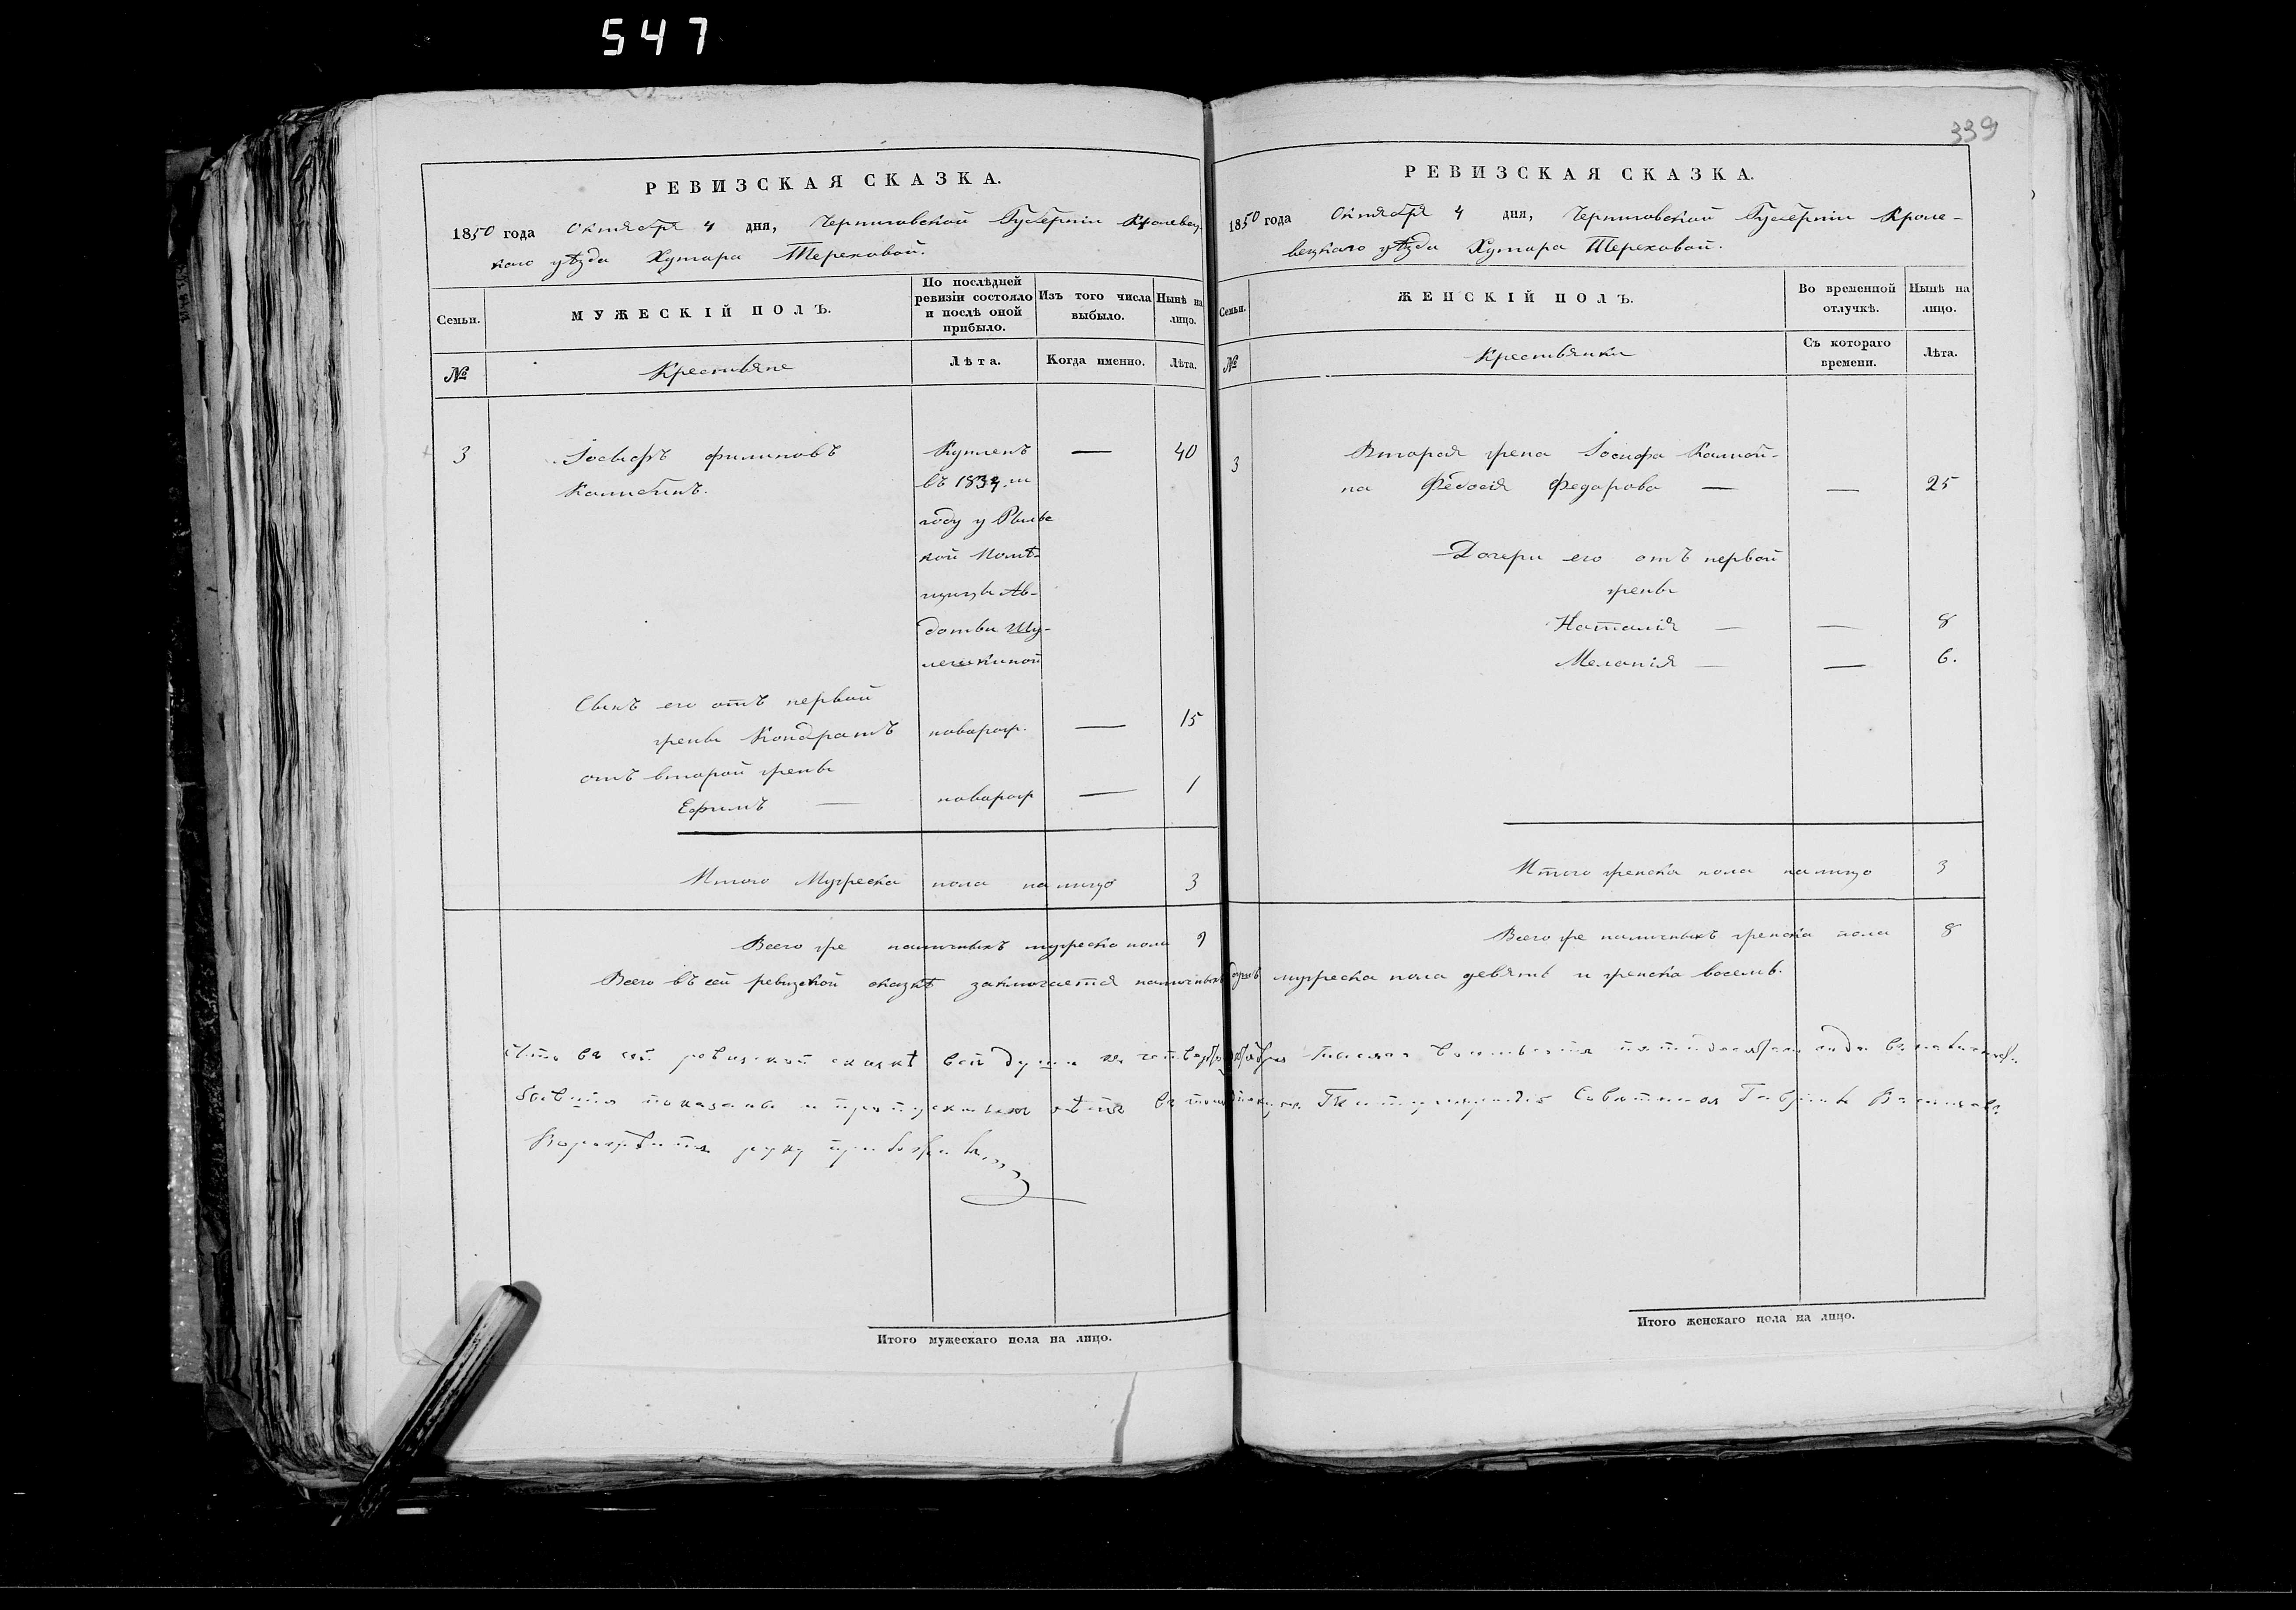 547
339
РЕВИЗСКАЯ СКАЗКА.
1850 года Октября 4 дня, Черниговской Губерніи Кролевец-
каго уѣзда Хутора Тереховой.
Семьи.
МУЖЕСКІЙ ПОЛЪ.
По послѣдней
ревизіи состояло
и послѣ оной
прибыло.
Изъ того числа
выбыло.
Нынѣ на
лицо.
№
Крестьяне
Лѣта.
Когда именно.
Лѣта.
3 Іосифъ Филиповъ Купленъ — 40
въ 183
году у Рыльс
кой Помѣ-
щицы Ав-
дотьи
Сынъ его отъ первой
жены Кондратъ новорож. — 15
отъ второй жены
Ефимъ — новорож — 1
Итого Мужеска пола налицо 3
Всего же наличныхъ мужеска пола 9
РЕВИЗСКАЯ СКАЗКА.
1850 года Октября 4 дня, Черниговской Губерніи Кроле-
вецкаго уѣзда Хутора Тереховой.
Семьи.
ЖЕНСКІЙ ПОЛЪ.
Во временной
отлучкѣ.
Нынѣ на
лицо.
№
Крестьянки
Съ котораго
времени.
Лѣта.
3 Вторая жена Іосифа
на Феодосія Федорова — — 25
Дочери его отъ первой
жены
Наталія — — 8
Меланія — — 6.
Итого женска пола налицо 3
Всего же наличныхъ женска пола 8
Всего въ сей ревизской сказкѣ заключается наличныхъ душъ мужеска пола девять и женска восемь.
Что въ сей ревизской сказкѣ всѣ души
показаны и пропущенныхъ нѣтъ въ томъ
руку приложилъ
Итого мужескаго пола на лицо.
Итого женскаго пола на лицо.